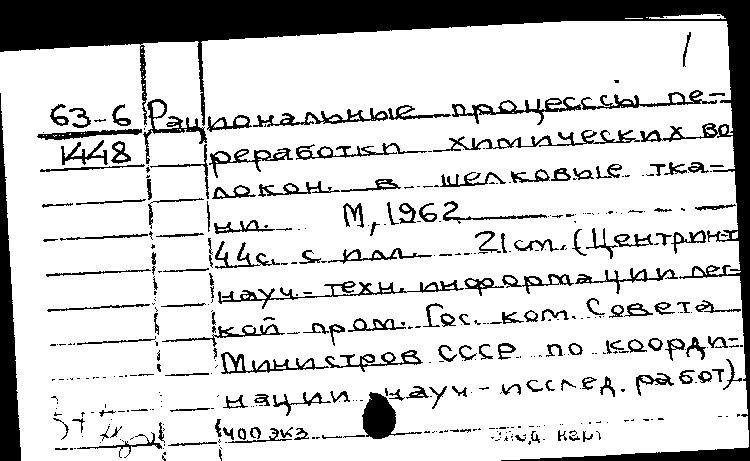 1
63-6 Рациональные процесссы пе-
1448 реработки химических во
локон. в шелковые тка-
ни. М, 1962
44с. с илл. 21 см. (Центр инт
науч-техн. информации лег-
кой пром. Гос. ком. Совета
Министров СССР по коорди-
нации науч-исслед. работ).
400 экз.